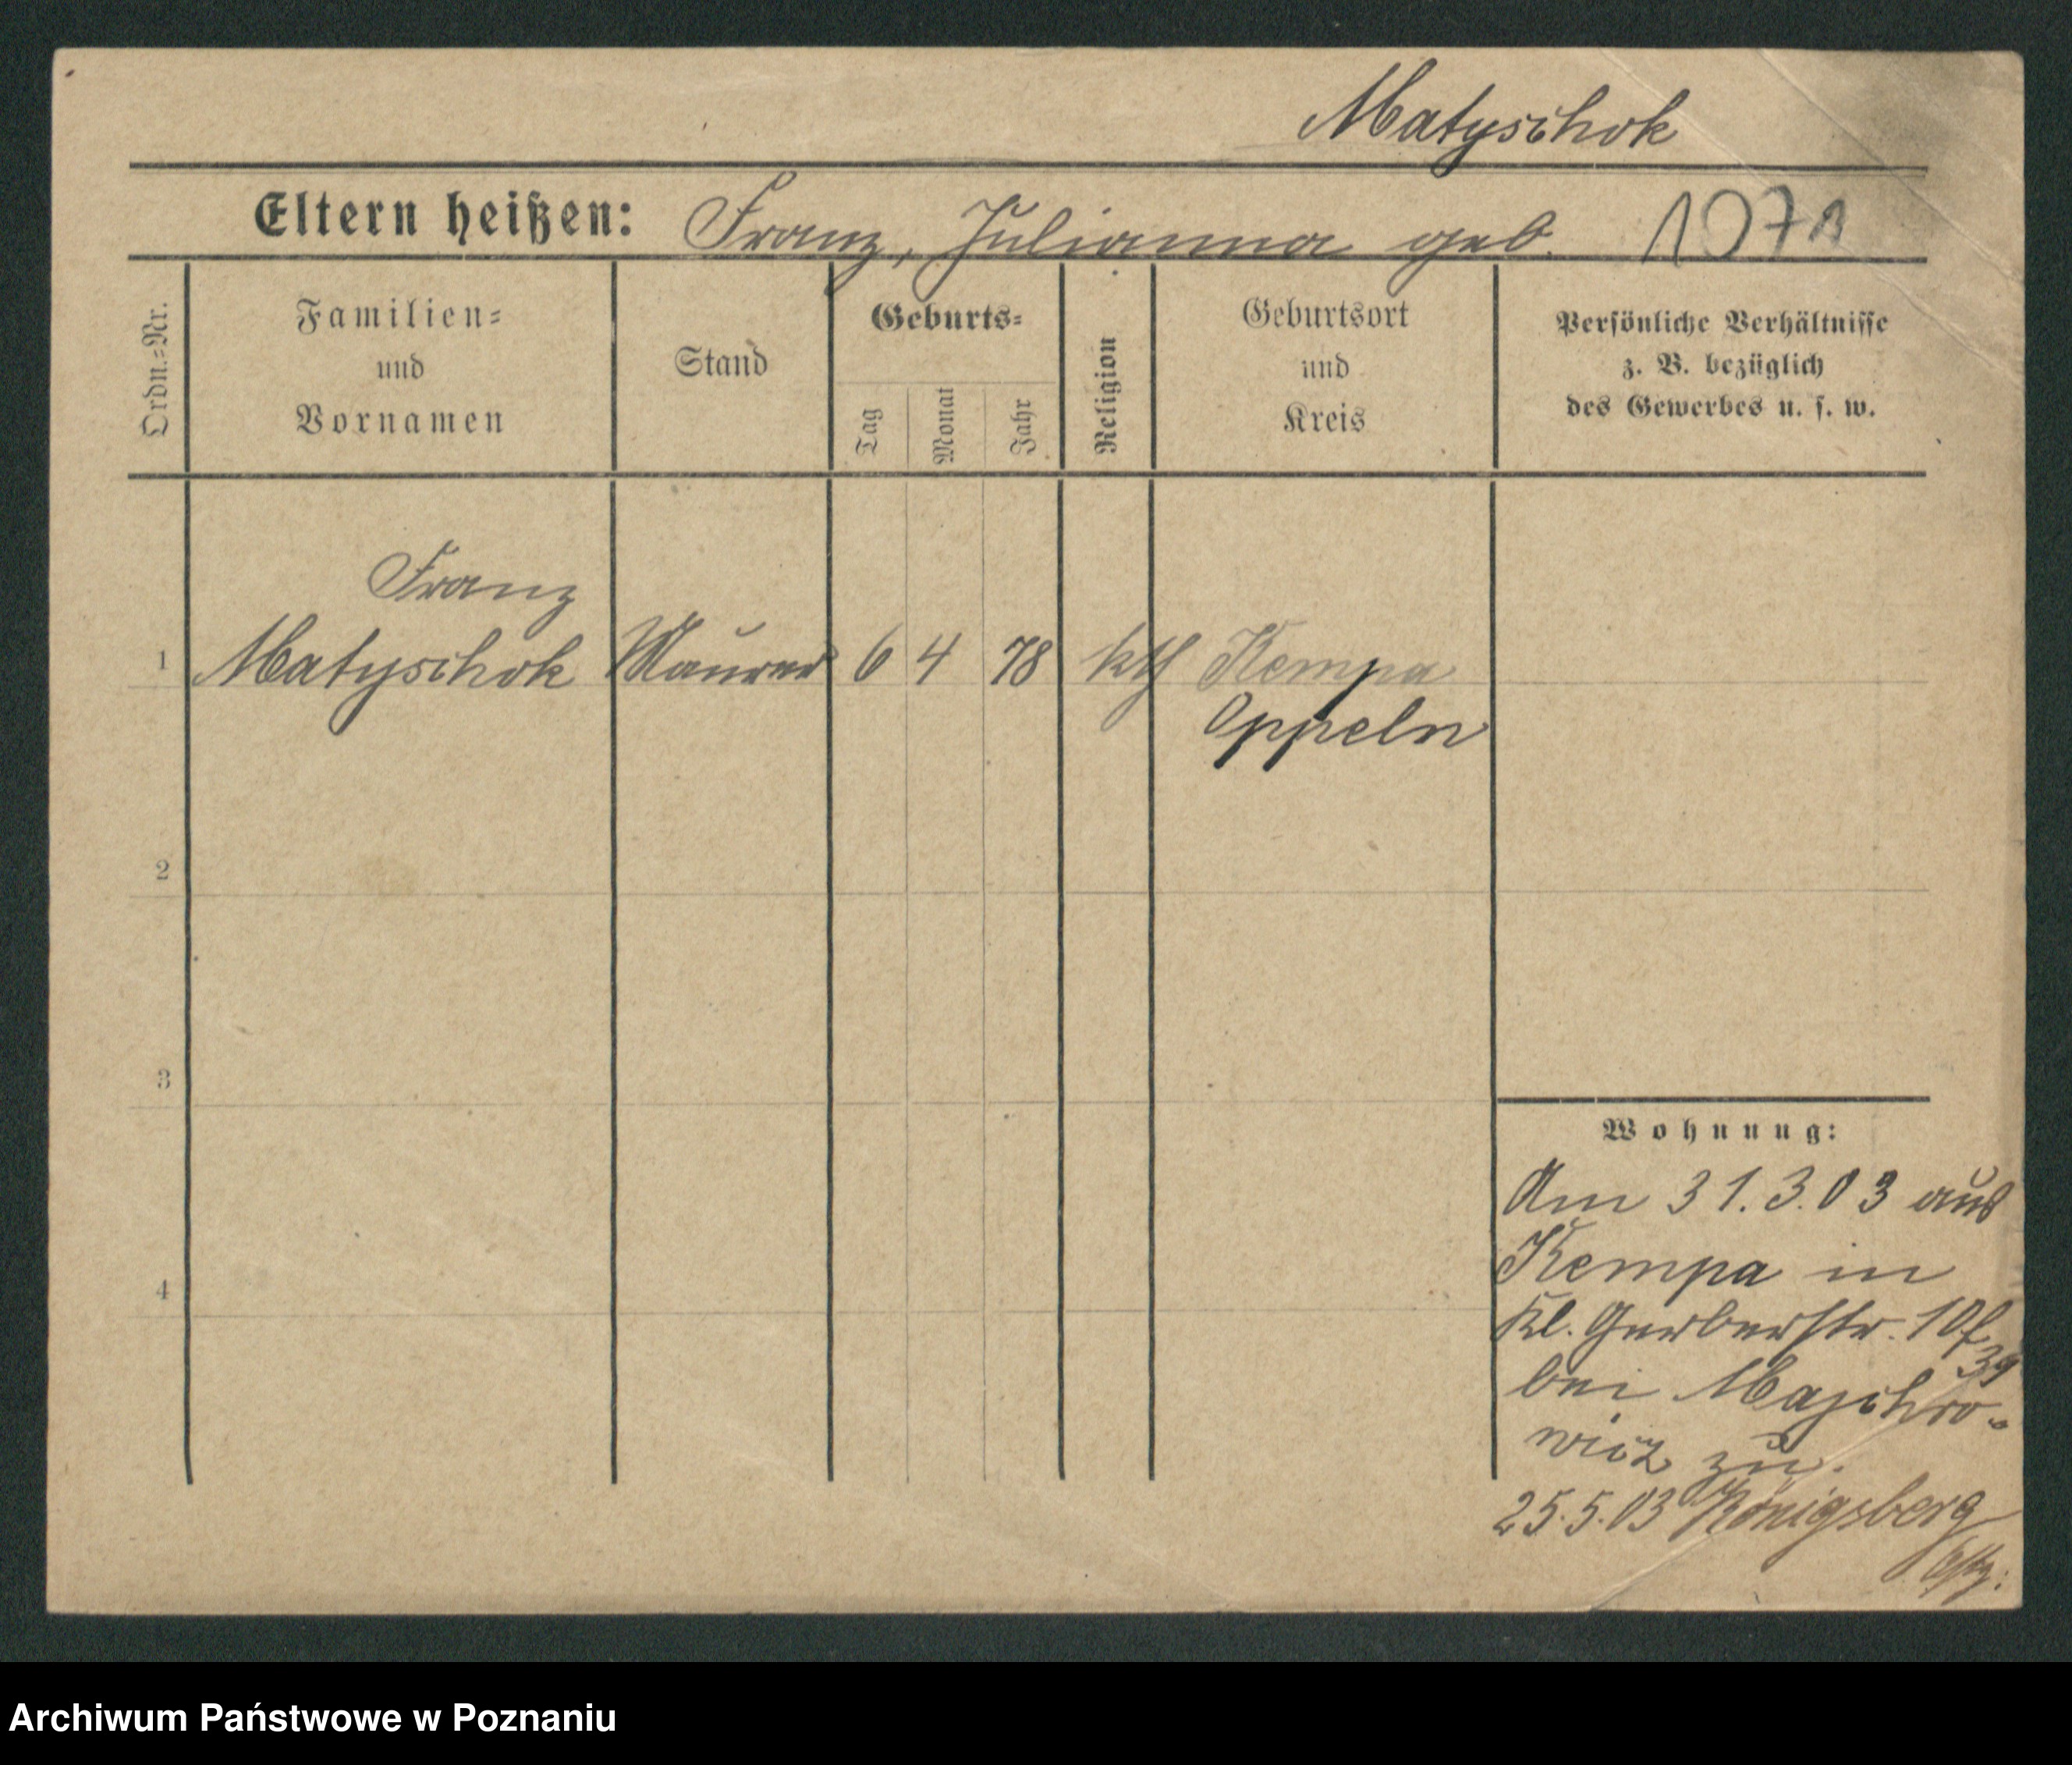 Matyschok
Eltern heißen: Franz, Julianna geb. 1071
Ordn.-Nr.
Familien=
und
Vornamen
Stand
Geburts=
Tag
Monat
Jahr
Religion
Geburtsort
und
Kreis
Persönliche Verhältnisse
z. B. bezüglich
des Gewerbes u. s. w.
Franz
1 Matyschok Maurer 6 4 78 kth Kempa
Oppeln
2
3
4
Wohnung:
Am 31.3.03 aus
Kempa in
Kl. Gerberstr. 10
bei Majchro-
wicz zu.
25.5.03 Königsberg
Archiwum Państwowe w Poznaniu